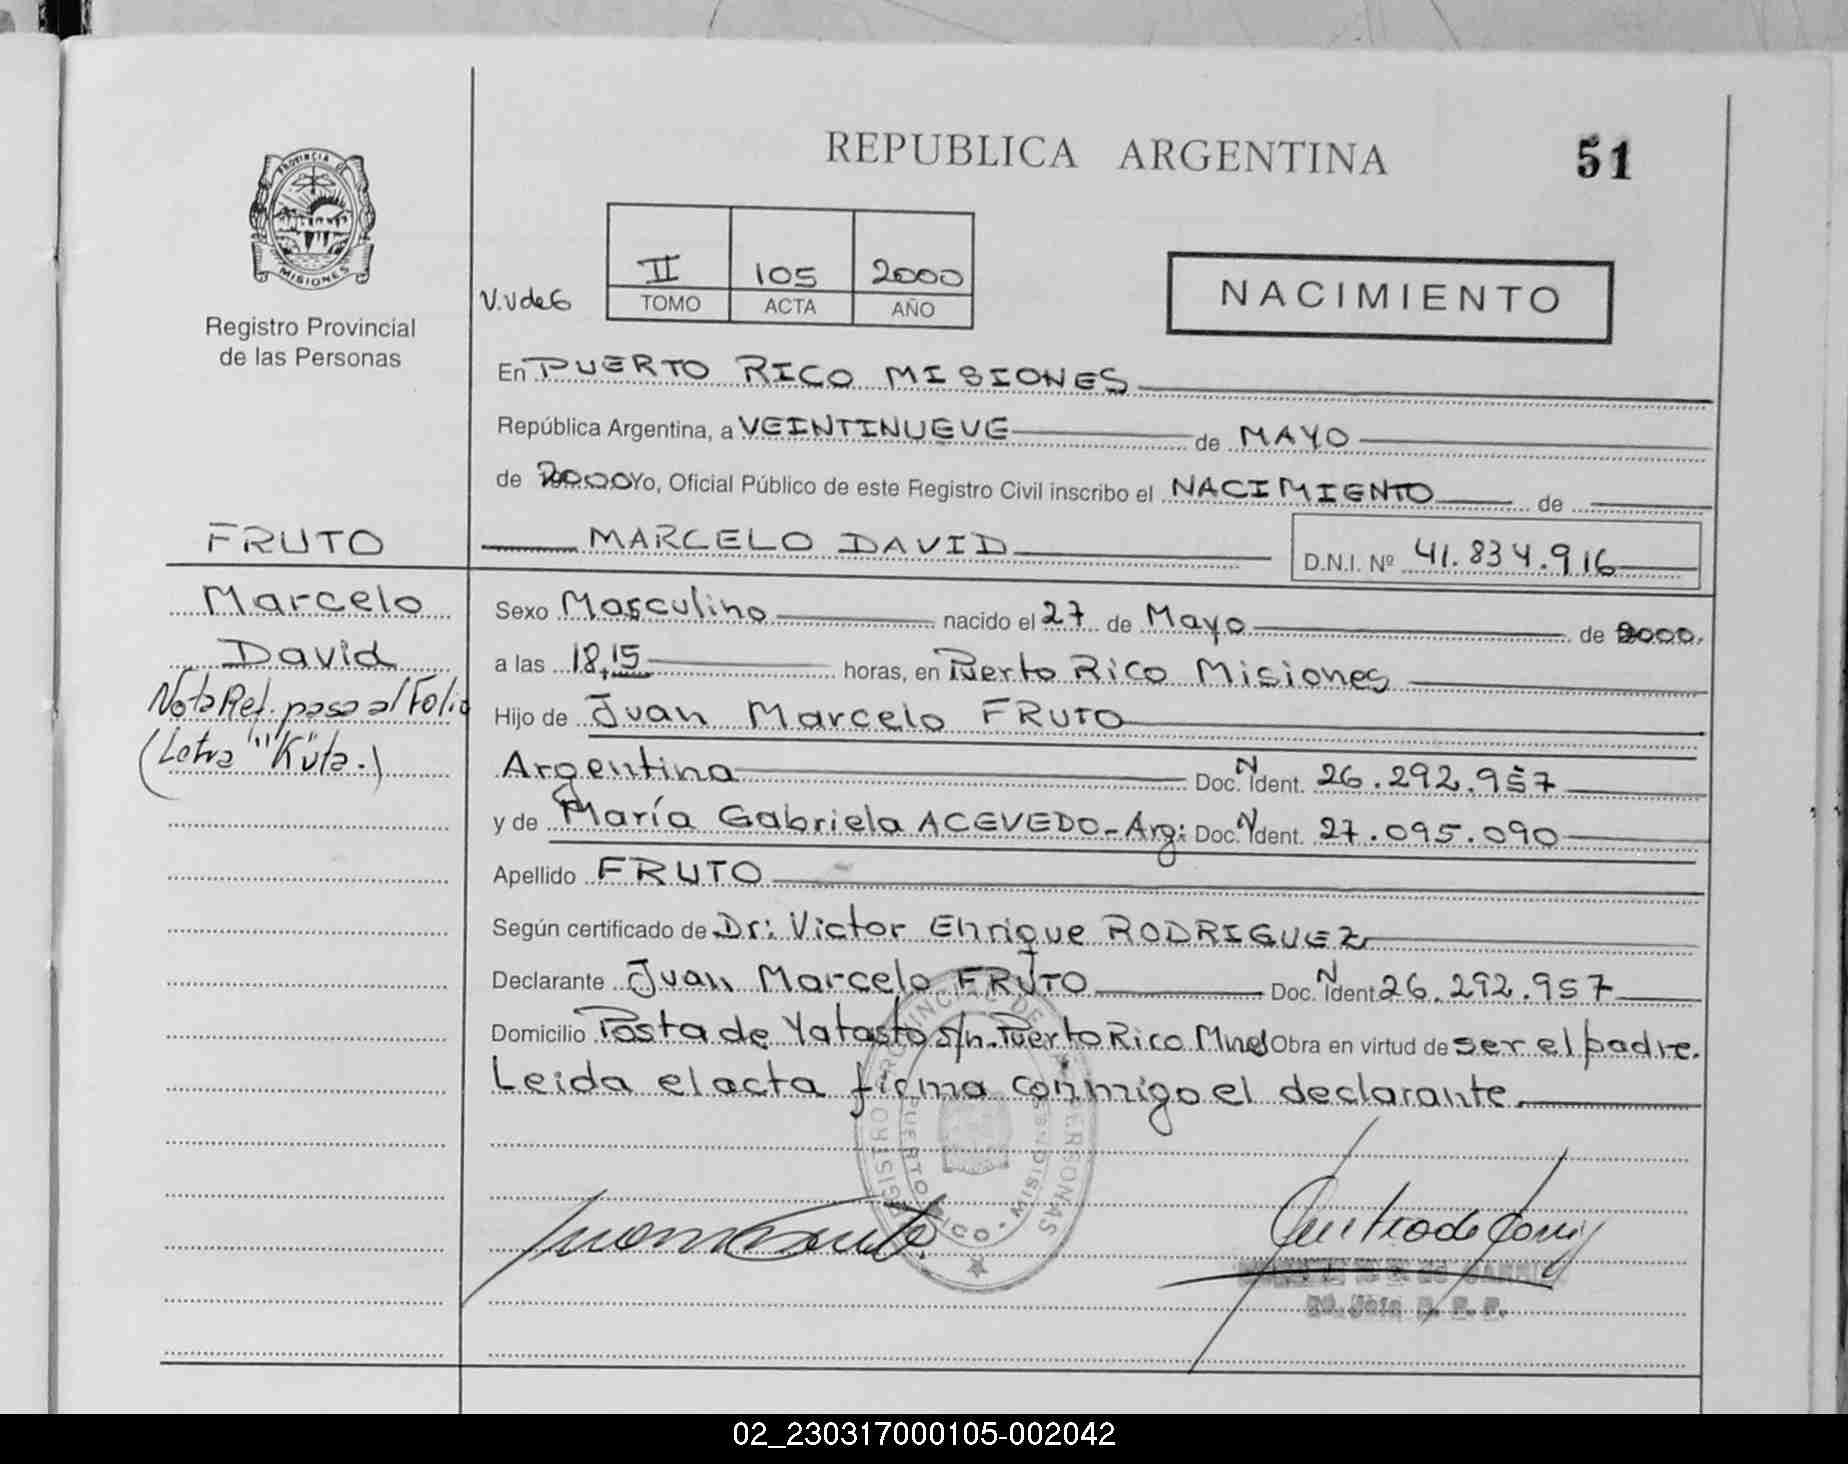 REPUBLICA ARGENTINA
51
PROVINCIA DE
MISIONES
Registro Provincial
de las Personas
V.V de G
II 105 2000
TOMO ACTA AÑO
NACIMIENTO
En PUERTO RICO MISIONES
República Argentina, a VEINTINUEVE de MAYO
de 2000 Yo, Oficial Público de este Registro Civil inscribo el NACIMIENTO de
FRUTO
MARCELO DAVID
D.N.I. Nº 41.834.916
Marcelo
David
Nota Ref. pasa al Folio
(Letra "Küta.)
Sexo Masculino nacido el 27 de Mayo de 2000.
a las 18,15 horas, en Puerto Rico Misiones
Hijo de Juan Marcelo FRUTO
Argentina Doc. N Ident. 26.292.957
y de María Gabriela ACEVEDO - Arg: Doc. N Ident. 27.095.090
Apellido FRUTO
Según certificado de Dr: Victor Enrique RODRIGUEZ
Declarante Juan Marcelo FRUTO Doc. N Ident. 26.292.957
Domicilio Posta de Yatasto s/n. Puerto Rico Mnes Obra en virtud de ser el padre.
Leida el acta firma conmigo el declarante
REGISTRO PROVINCIAL DE LAS PERSONAS
PUERTO RICO - MISIONES
02_230317000105-002042